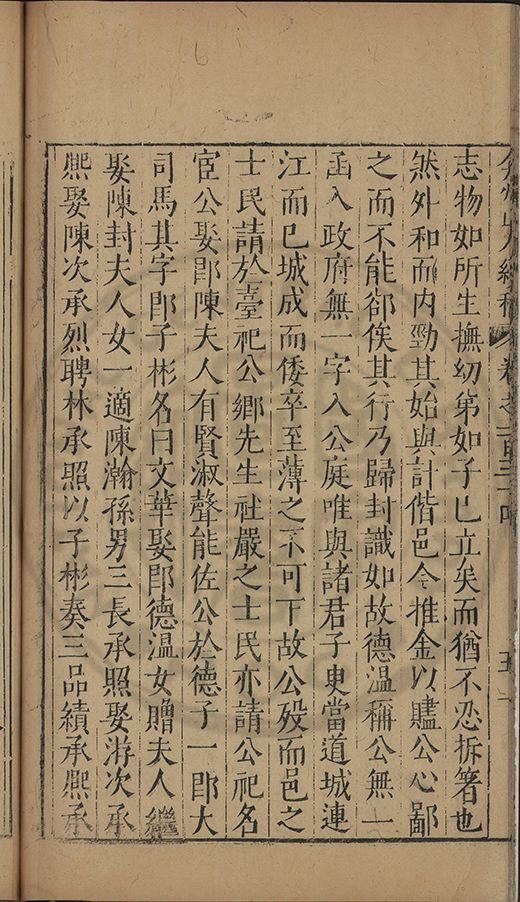 弇州山人續稿 卷之一百三十四 五
志物如所生撫幼弟如子已立矣而猶不忍拆箸也
然外和而內勁其始與計偕邑令推金以贐公心鄙
之而不能郤俟其行乃歸封識如故德溫稱公無一
函入政府無一字入公庭唯與諸君子吏當道城連
江而已城成而倭卒至薄之不可下故公歿而邑之
士民請於臺祀公鄉先生社嚴之士民亦請公祀名
宦公娶郎陳夫人有賢淑聲能佐公於德子一郎大
司馬其字郎子彬名曰文華娶郎德溫女贈夫人繼
娶陳封夫人女一適陳瀚孫男三長承照娶游次承
熙娶陳次承烈聘林承照以子彬奏三品績承熙承